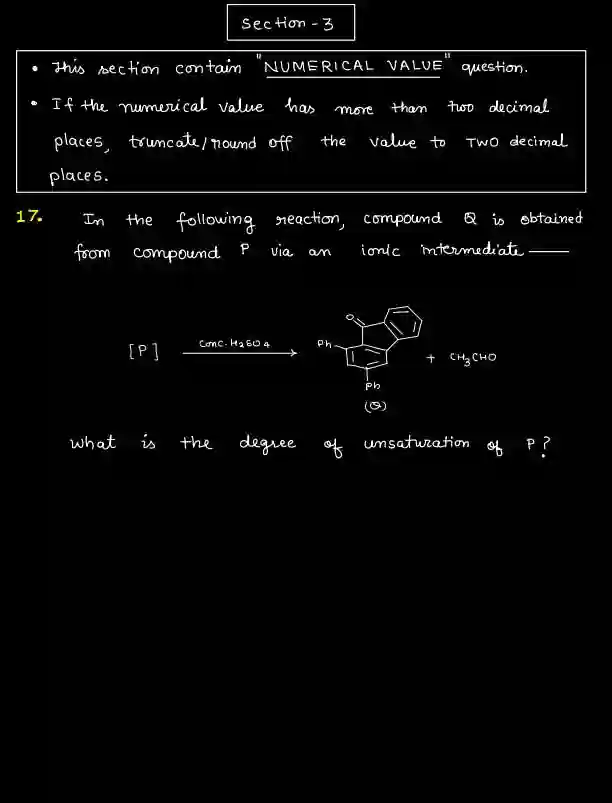 Section - 3
• This section contain "NUMERICAL VALUE" question.
• If the numerical value has more than two decimal
places, truncate/round off the value to TWO decimal
places.
17. In the following reaction, compound Q is obtained
from compound P via an ionic intermediate —
[P] Conc. H2SO4 O Ph Ph + CH3CHO
(Q)
What is the degree of unsaturation of P?